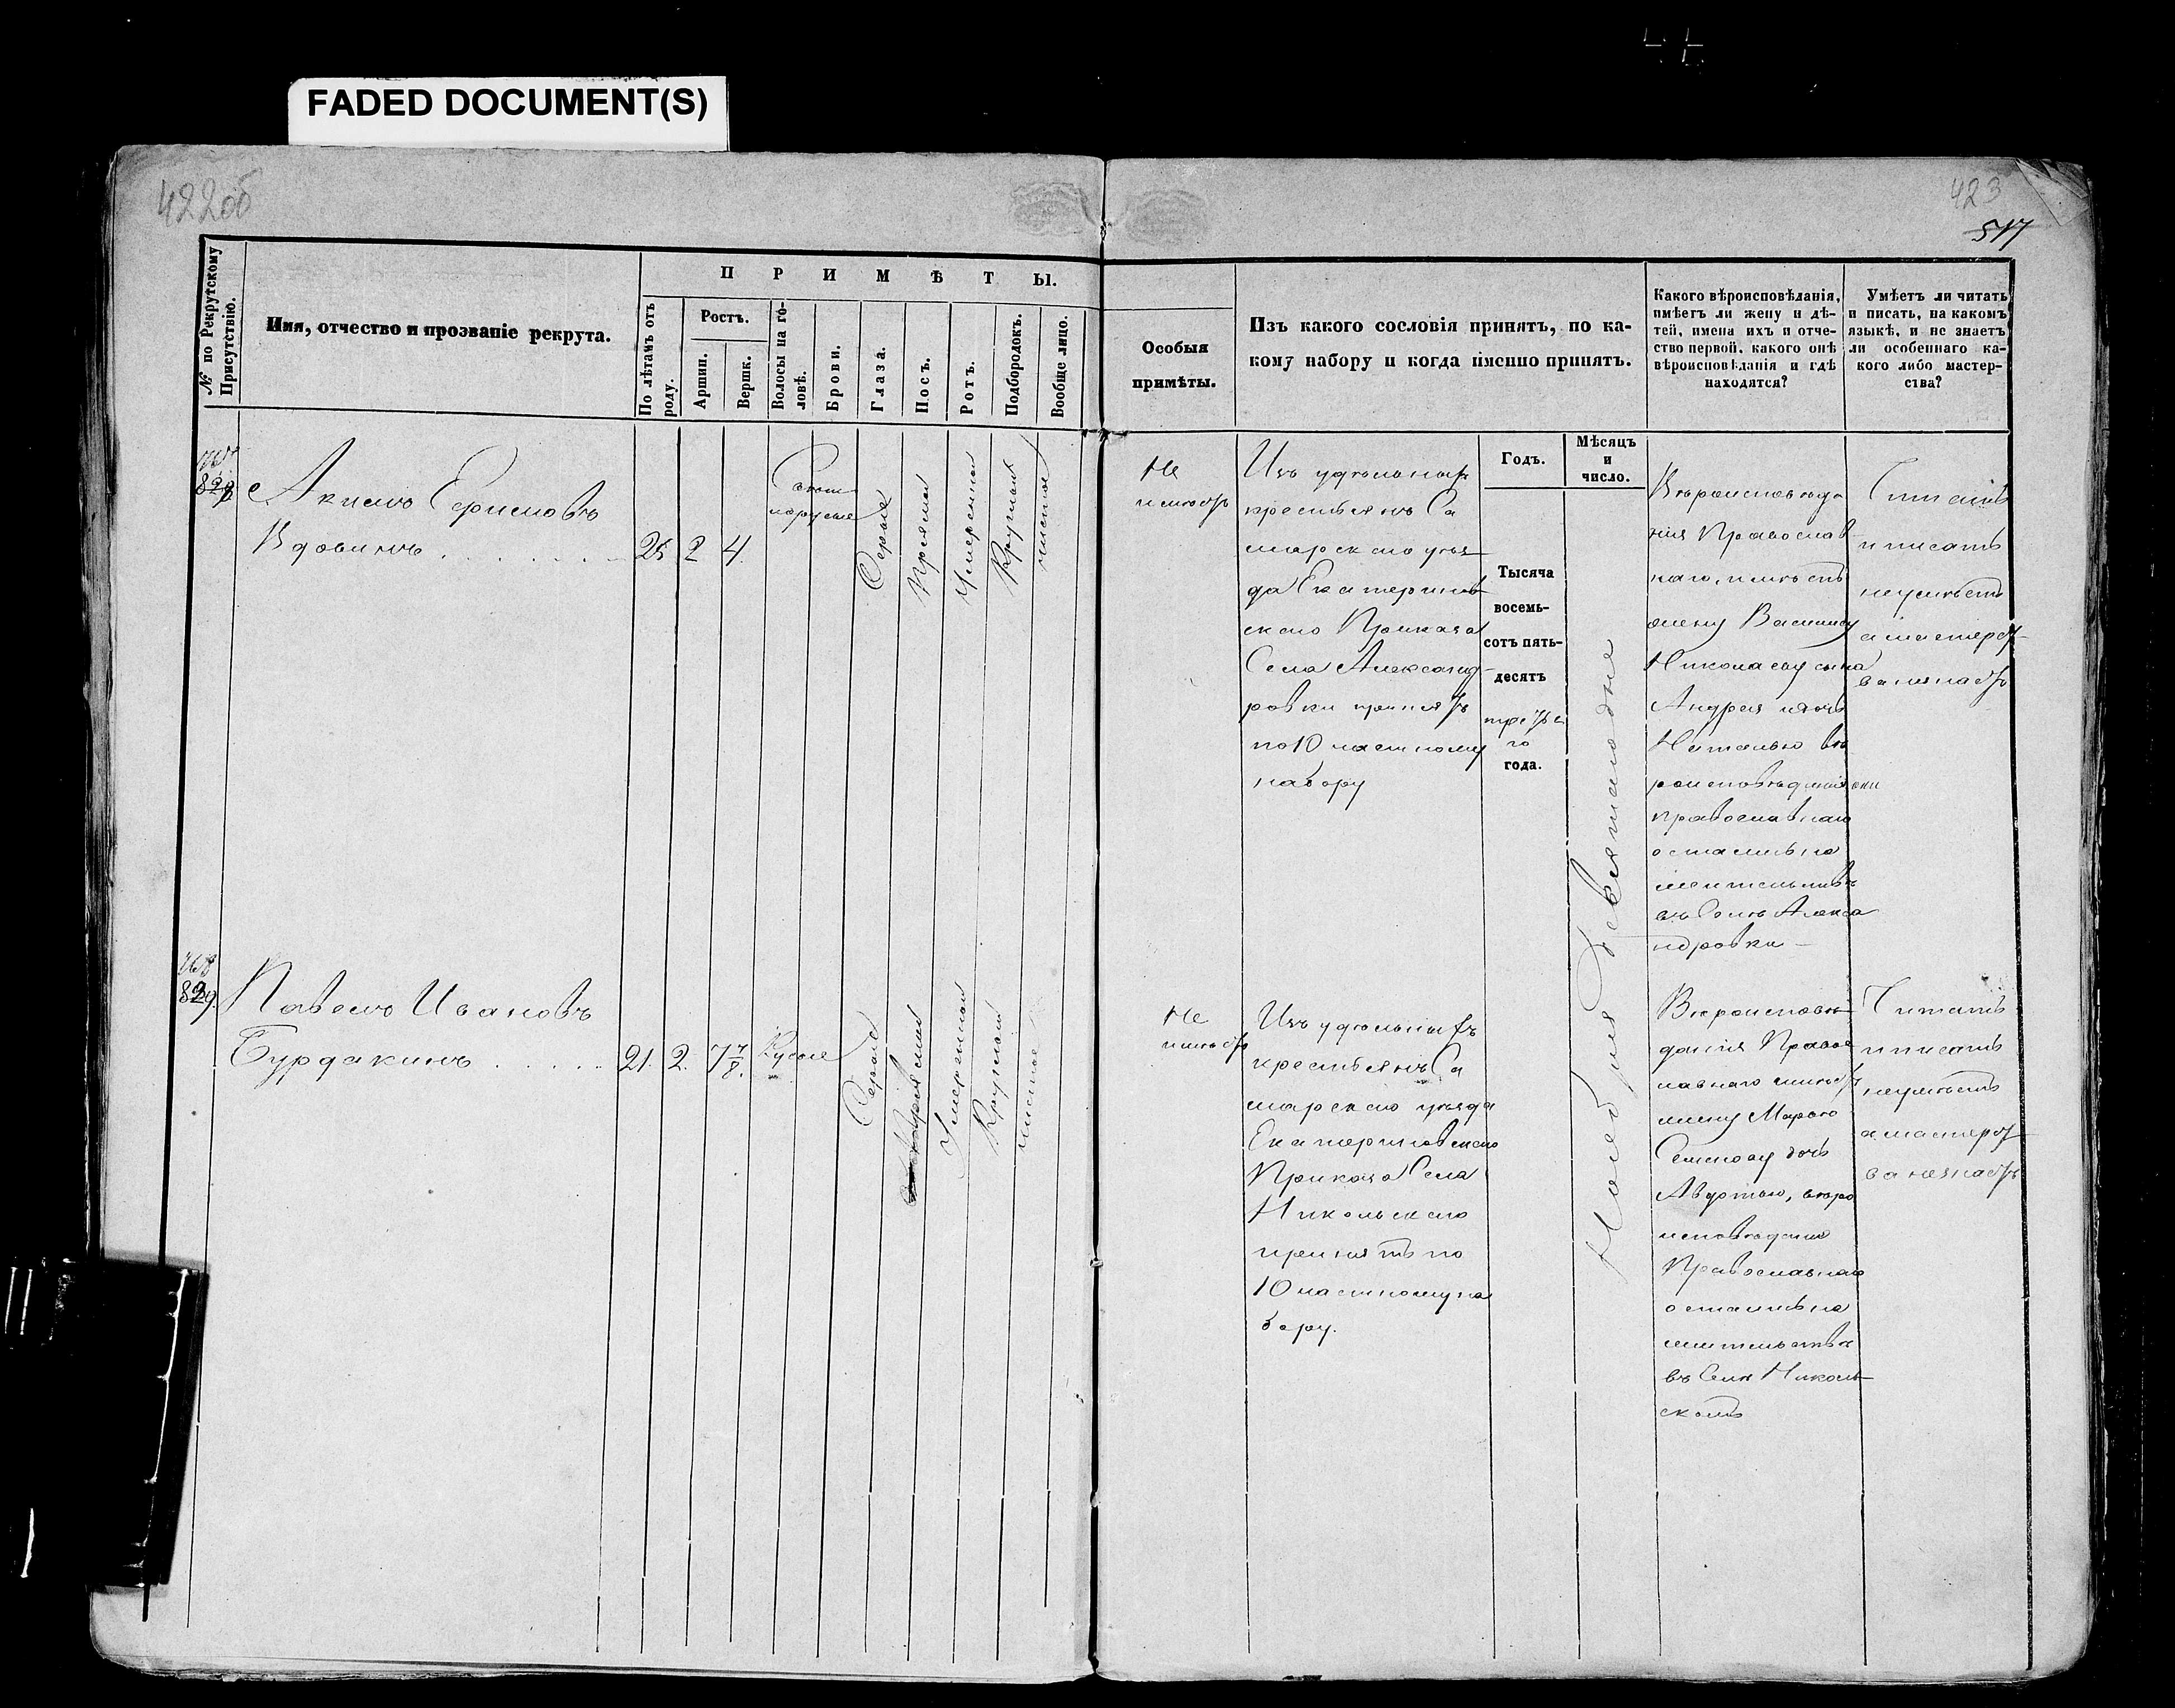 FADED DOCUMENT(S)
422об
423
517
№ по Рекрутскому Присутствію.
Имя, отчество и прозваніе рекрута.
ПРИМѢТЫ.
По лѣтамъ отъ роду.
Ростъ.
Аршин.
Вершк.
Волосы на го-
ловѣ.
Брови.
Глаза.
Носъ.
Ротъ.
Подбородокъ.
Вообще лицо.
Особыя
примѣты.
Изъ какого сословія принятъ, по ка-
кому набору и когда именно принятъ.
Какого вѣроисповѣданія,
имѣетъ ли жену и дѣ-
тей, имена ихъ и отче-
ство первой, какого онѣ
вѣроисповѣданія и гдѣ
находятся?
Умѣетъ ли читать
и писать, на какомъ
языкѣ, и не знаетъ
ли особеннаго ка-
кого либо мастер-
ства?
Годъ.
Мѣсяцъ
и
число.
Акимъ
Вдовинъ
25 2 4
Свѣтло
русые
Сѣрые
Прямой
Умѣренный
Круглый
чистое
Не
имѣетъ
Изъ удѣльныхъ
крестьянъ Са
марскаго уѣз
да Екатеринов
скаго Приказа
Села Александ
ровки принятъ
по 10 частному
набору
Тысяча
восемь-
сотъ пять-
десятъ
третья
го
года.
Ноября Девятнадцатаго
Вѣроисповѣда
нія Православ
наго, имѣетъ
жену Василису
Николаеву сына
Андрея и дочь
Наталью вѣ
роисповѣданія они
православнаго
остались на
жительствѣ
въ Селѣ Алекса
ндровки
Читать
и писать
неумѣетъ
а мастерст
ва незнаетъ
829.
Павелъ Ивановъ
Бурдакинъ
21. 2. 7 7/8.
Русые
Сѣрые
Прямой
Умѣренный
Круглый
чистое
Не
имѣетъ
Изъ удѣльныхъ
крестьянъ Са
марскаго уѣзда
Екатериновскаго
Приказа Села
Никольскаго
принятъ по
10 частному на
бору.
Вѣроисповѣ
данія Правос
лавнаго имѣетъ
жену Марью
Семенову дочь
Авдотью, вѣро
исповѣданія
Православнаго
остались на
жительствѣ
въ Селѣ Николь
скомъ
Читать
и писать
неумѣетъ
а мастерст
ва незнаетъ